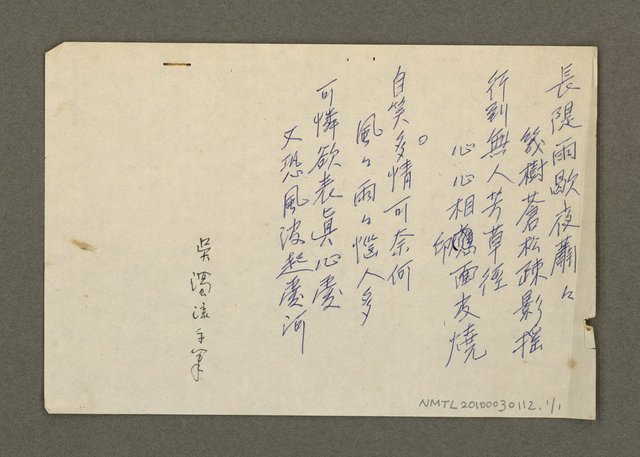 長隄雨歇夜蕭々
幾樹蒼松疎影摇
行到無人芳草徑
心心相印面皮燒
自笑多情可奈何
風々雨々惱人多
可憐欲表真心處
又恐風波起愛河
吳濁流手筆
NMTL20100030112, 1/1